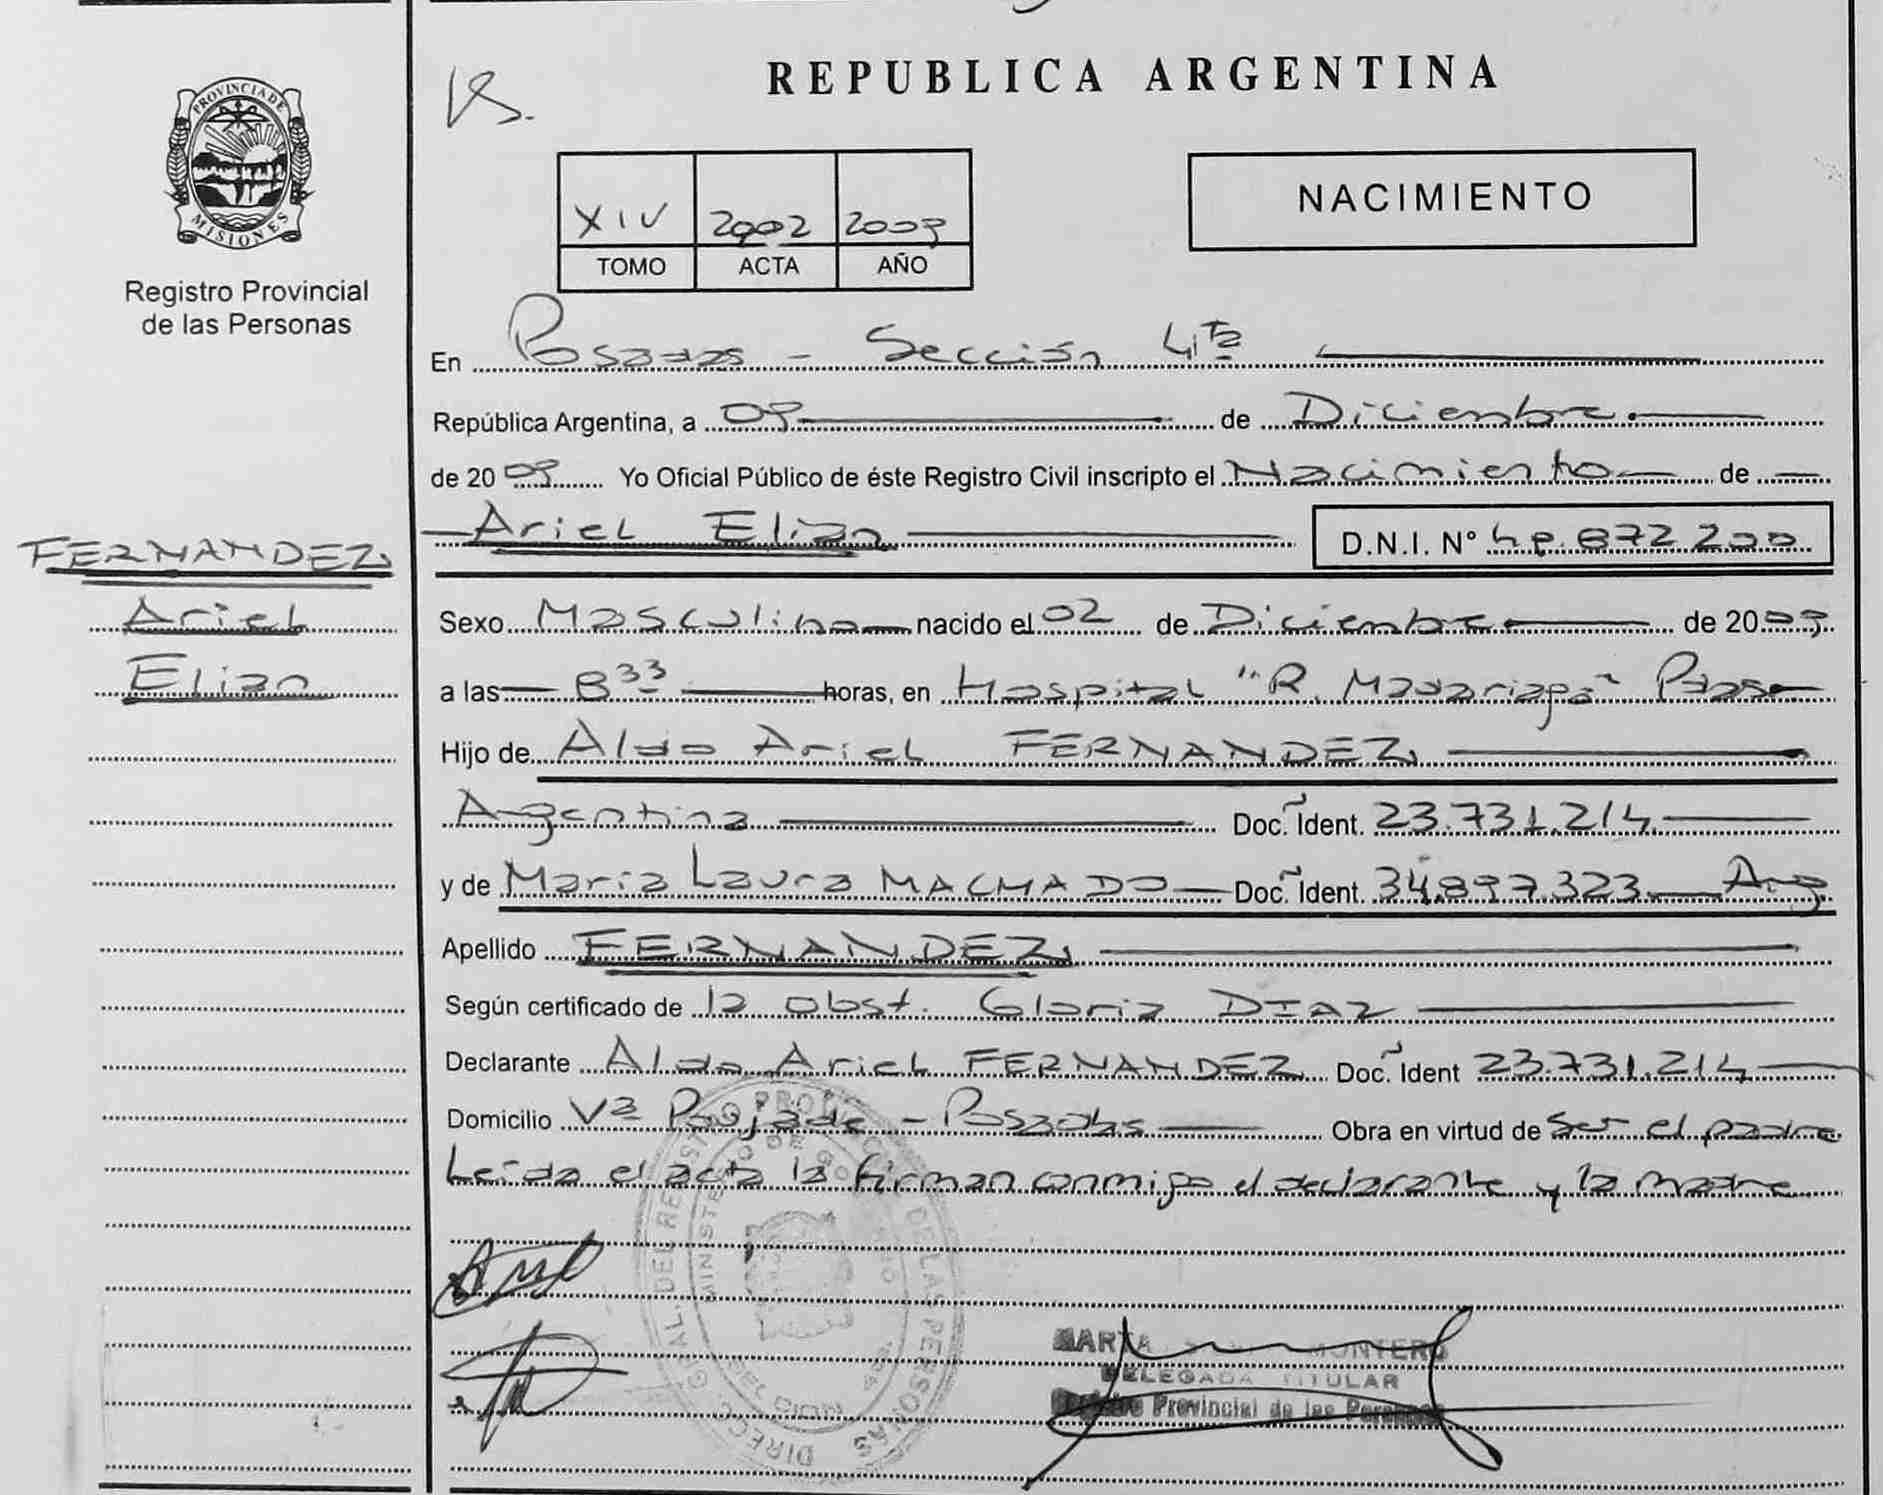 REPUBLICA ARGENTINA
PROVINCIA DE MISIONES
Registro Provincial
de las Personas
XIV 2002 2009
TOMO ACTA AÑO
NACIMIENTO
En Posadas - Sección 4ta
República Argentina, a 09 de Diciembre
de 2009 Yo Oficial Público de éste Registro Civil inscripto el Nacimiento de
Ariel Elian D.N.I. Nº 872 200
FERNANDEZ
Ariel
Elian
Sexo Masculino nacido el 02 de Diciembre de 2009
a las 8 33 horas, en Hospital "R. Madariaga" Pdas
Hijo de Aldo Ariel FERNANDEZ
Argentina Doc. Ident. 23.731.214
y de María Laura MACHADO Doc. Ident. 34.897.323 Arg
Apellido FERNANDEZ
Según certificado de la obst. Gloria DIAZ
Declarante Aldo Ariel FERNANDEZ Doc. Ident 23.731.214
Domicilio Vª Poujade - Posadas Obra en virtud de ser el padre
Leída el acta la firman conmigo el declarante y la madre
MARTA MONTERO
DELEGADA TITULAR
Registro Provincial de las Personas